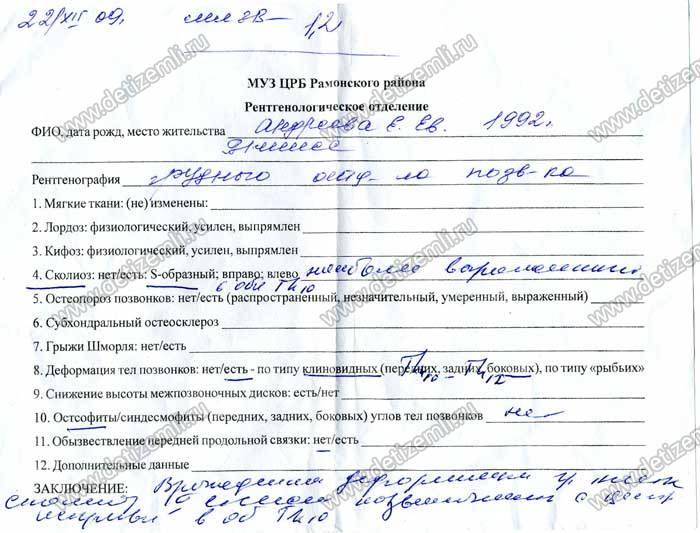 22/XII 09. мгзв- 1,2
МУЗ ЦРБ Рамонского района
Рентгенологическое отделение
ФИО, дата рожд, место жительства Андреева Е. Ев. 1992г.
Рентгенография грудного отд-ла позв-ка
1. Мягкие ткани: (не) изменены:
2. Лордоз: физиологический, усилен, выпрямлен
3. Кифоз: физиологический, усилен, выпрямлен
4. Сколиоз: нет/есть: S-образный; вправо; влево наиболее выраженный
в обл Th10
5. Остеопороз позвонков: нет/есть (распространенный, незначительный, умеренный, выраженный)
6. Субхондральный остеосклероз
7. Грыжи Шморля: нет/есть
8. Деформация тел позвонков: нет/есть - по типу клиновидных (передних, задних, боковых), по типу «рыбьих»
Th10 - Th12
9. Снижение высоты межпозвоночных дисков: есть/нет
10. Остсофиты/синдесмофиты (передних, задних, боковых) углов тел позвонков не
11. Обызвествление передней продольной связки: нет/есть
12. Дополнительные данные
ЗАКЛЮЧЕНИЕ: Врожденная деформация
II степени позвоночника с центр
в об Th10
www.detizemli.ru